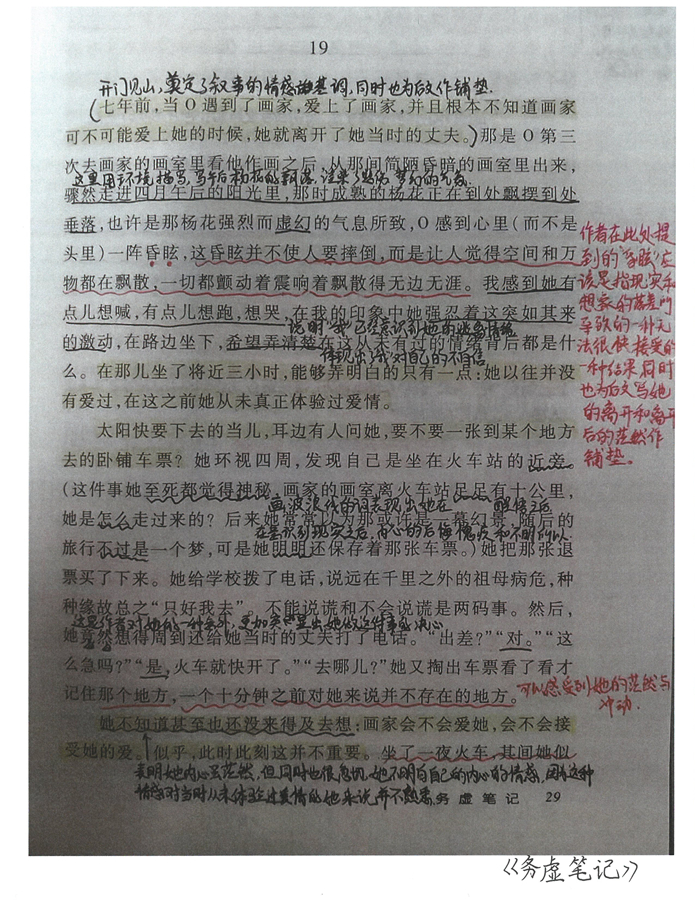 19
开门见山,奠定了叙事的情感基调,同时也为后文作铺垫.
(七年前,当O遇到了画家,爱上了画家,并且根本不知道画家
可不可能爱上她的时候,她就离开了她当时的丈夫。)那是O第三
次去画家的画室里看他作画之后,从那间简陋昏暗的画室里出来,
这里用环境描写,写午后杨花的飘落,
骤然走进四月午后的阳光里,那时成熟的杨花正在到处飘摆到处
垂落,也许是那杨花强烈而虚幻的气息所致,O感到心里(而不是
头里)一阵昏眩,这昏眩并不使人要摔倒,而是让人觉得空间和万
物都在飘散,一切都颤动着震响着飘散得无边无涯。我感到她有
点儿想喊,有点儿想跑,想哭,在我的印象中她强忍着这突如其来
说明“我”已经意识到她的
的激动,在路边坐下,希望弄清楚在这从未有过的情绪背后都是什
体现出 对自己的不自信
么。在那儿坐了将近三小时,能够弄明白的只有一点:她以往并没
有爱过,在这之前她从未真正体验过爱情。
作者在此处提
到的“昏眩”应
该是指现实和
想象的落差所
导致的一种无
法很快接受的
一种结果,同时
也为后文写她
的离开和离开
后的茫然作
铺垫。
太阳快要下去的当儿,耳边有人问她,要不要一张到某个地方
去的卧铺车票?她环视四周,发现自己是坐在火车站的近旁。
(这件事她至死都觉得神秘,画家的画室离火车站足足有十公里,
画波浪线的词表现出她在 醒悟之后
她是怎么走过来的?后来她常常以为那或许是一幕幻景,随后的
在意识到现实之后,内心的后悔
旅行不过是一个梦,可是她明明还保存着那张车票。)她把那张退
票买了下来。她给学校拨了电话,说远在千里之外的祖母病危,种
种缘故总之“只好我去”。不能说谎和不会说谎是两码事。然后,
这是作者对她的一种 ,更加突显出她做这件事的决心
她竟然想得周到还给她当时的丈夫打了电话。“出差?”“对。”“这
么急吗?”“是,火车就快开了。”“去哪儿?”她又掏出车票看了看才
记住那个地方,一个十分钟之前对她来说并不存在的地方。
可以感受到她的茫然与
冲动.
她不知道甚至也还没来得及去想:画家会不会爱她,会不会接
受她的爱。似乎,此时此刻这并不重要。坐了一夜火车,其间她似
表明她内心虽茫然,但同时也很急切,她不明白自己的内心的情感,因为这种
情感对当时从未体验过爱情的她来说,并不熟悉.
务虚笔记 29
《务虚笔记》